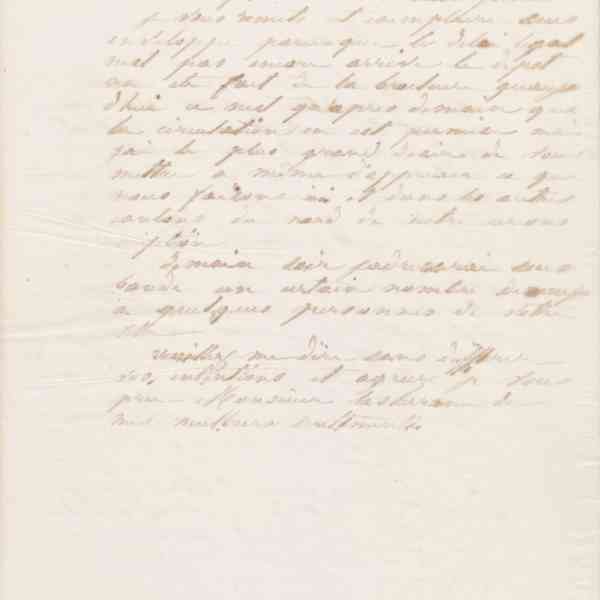 je vous remets et exemplaire sous
enveloppe parceque le délai légal
n'est pas encore arrivé le dépot
na été fait de la brochure quaujour
d'hui ce nest qu'apres demain que
la circulation en est permise mais
j'ai le plus grand désir de vous
mettre a même d'apprecier ce que
nous faisons ici et dans les autres
cantons du nord de notre circons
cription
Demain soir j'adresserai sous
bande un certain nombre
a quelques personnes de votre
ville
veuillez me dire sans différer
vos intentions et agréer je vous
prie Monsieur de
mes meilleurs sentiments.